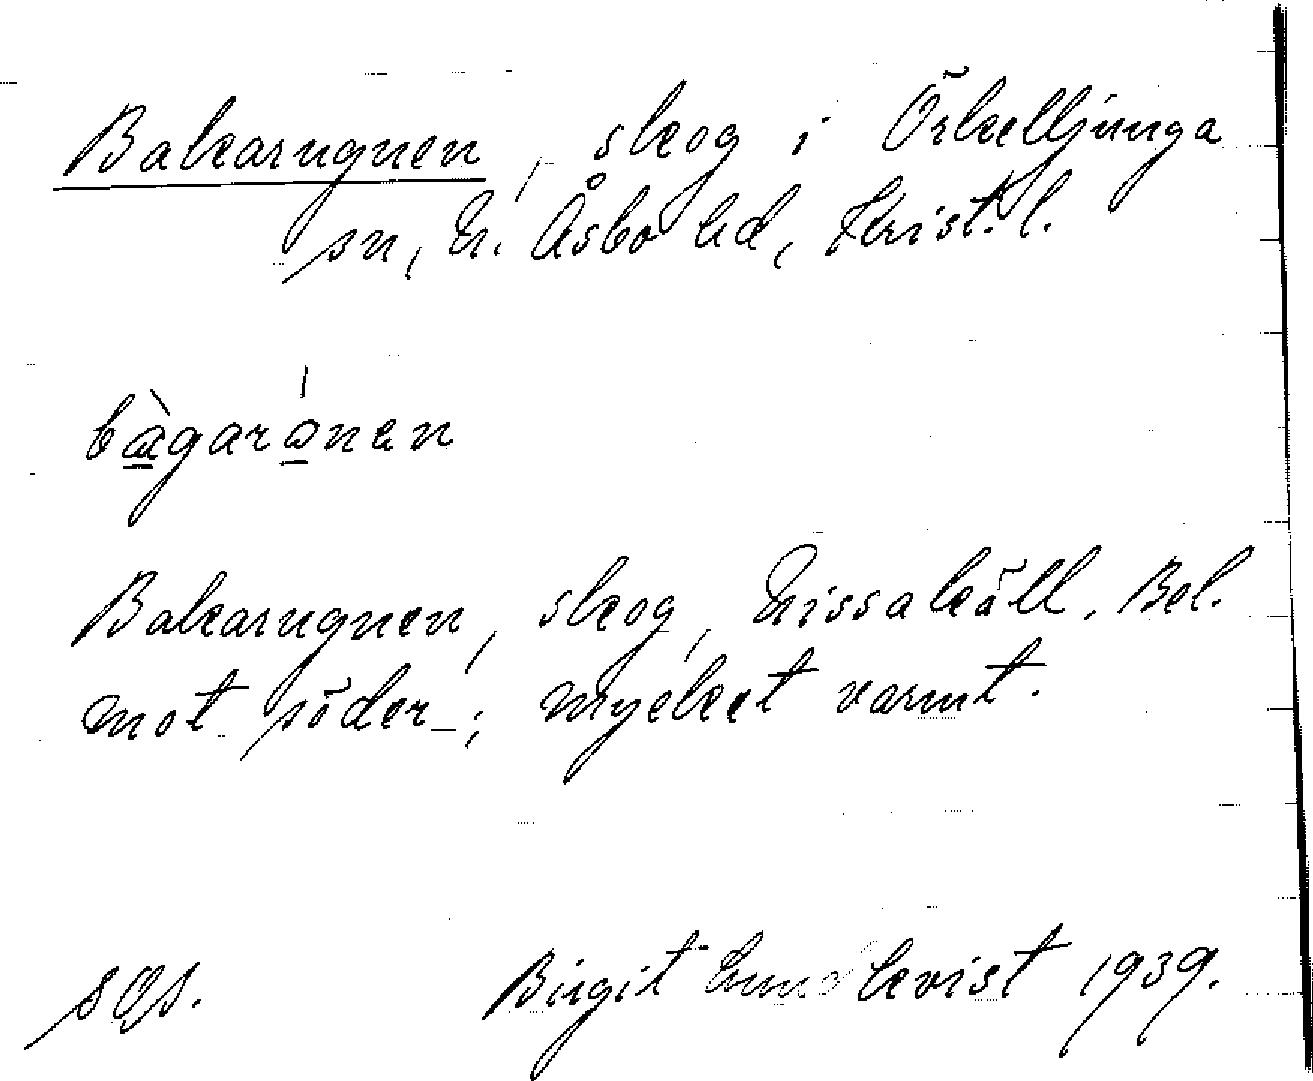 Bakarugnen, skog i Örkelljunga
sn, N. Åsbo hd, Krist. l.
bàgarónen
Bakarugnen, skog, Rissakäll. Bel.
mot söder; mycket varmt.
sgs. Birgit Lundkvist 1939.